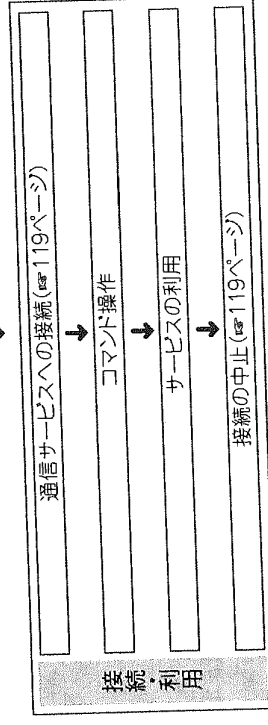 接続・利用
通信サービスへの接続(☞119ページ)
↓
コマンド操作
↓
サービスの利用
↓
接続の中止(☞119ページ)